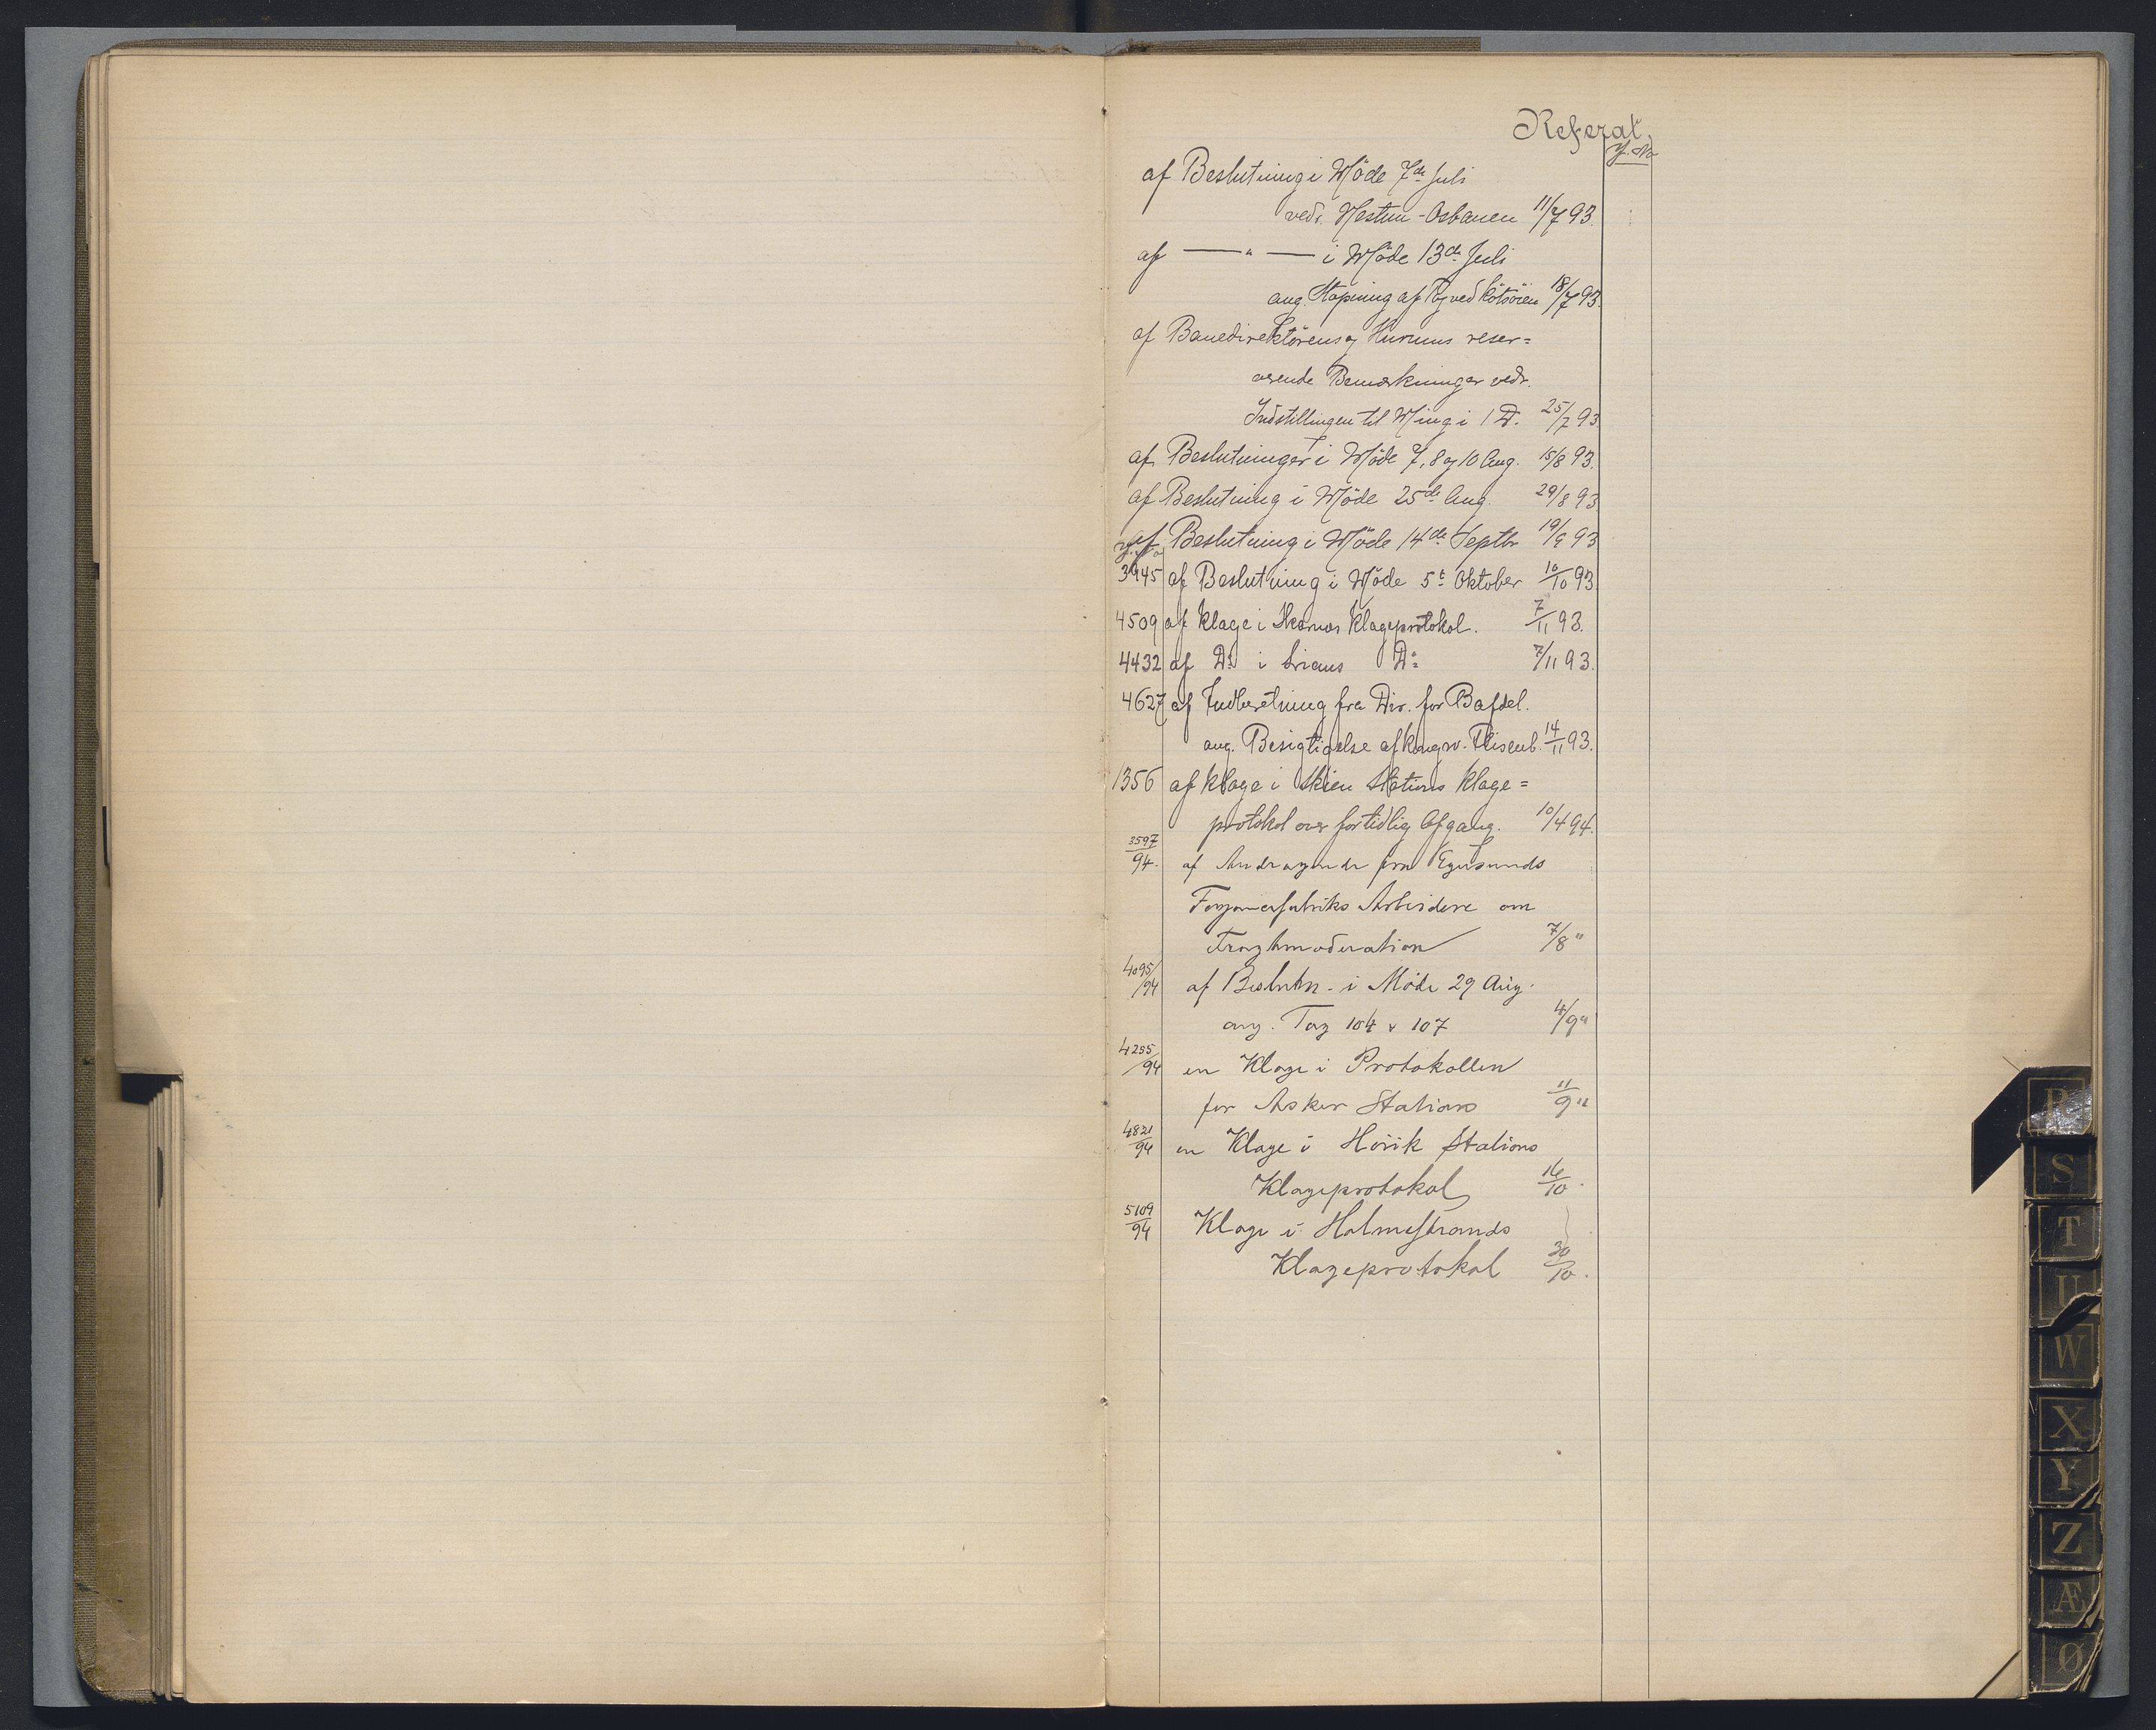 Referat,
J. No
af Beslutning i Møde 7de Juli
vedr. Nestun-Osbanen 11/7 93.
af — " — i Møde 13de Juli
ang. Stopning af Tog ved 18/7 93.
af Banedirektørens og Hurums reser=
verende Bemærkninger vedr.
Indstillingen til i 1 D. 25/7 93.
af Beslutninger i Møde 7, 8 og 10 Aug. 15/8 93.
af Beslutning i Møde 25de Aug. 29/8 93
af Beslutning i Møde 14de Septbr 19/9 93
J. No
3945 af Beslutning i Møde 5t Oktober 10/10 93.
4509 af Klage i Klageprotokol. 7/11 93.
4432 af Do i Lriens Do 7/11 93.
4627 af Indberetning fra Dir. for Bafdel.
ang. Besigtigelse af Kongsv. Flisenb. 14/11 93.
1356 af Klage i Skien Stations Klage=
protokol over fortidlig Afgang. 10/4 94.
3597/94. af Andragende fra Egersunds
Fayancefabriks Arbeidere om
Fragtmoderation 7/8 "
4095/94 af Beslutn. i Møde 29 Aug.
ang. Tog 104 & 107 4/9 "
4255/94 en Klage i Protokollen
for Asker Stations 11/9 "
4821/94 en Klage i Hørik Stations
Klageprotokol 16/10.
5109/94 Klage i Holmestrands
Klageprotokol 30/10.
R
S
T
U
W
X
Y
Z
Æ
Ø